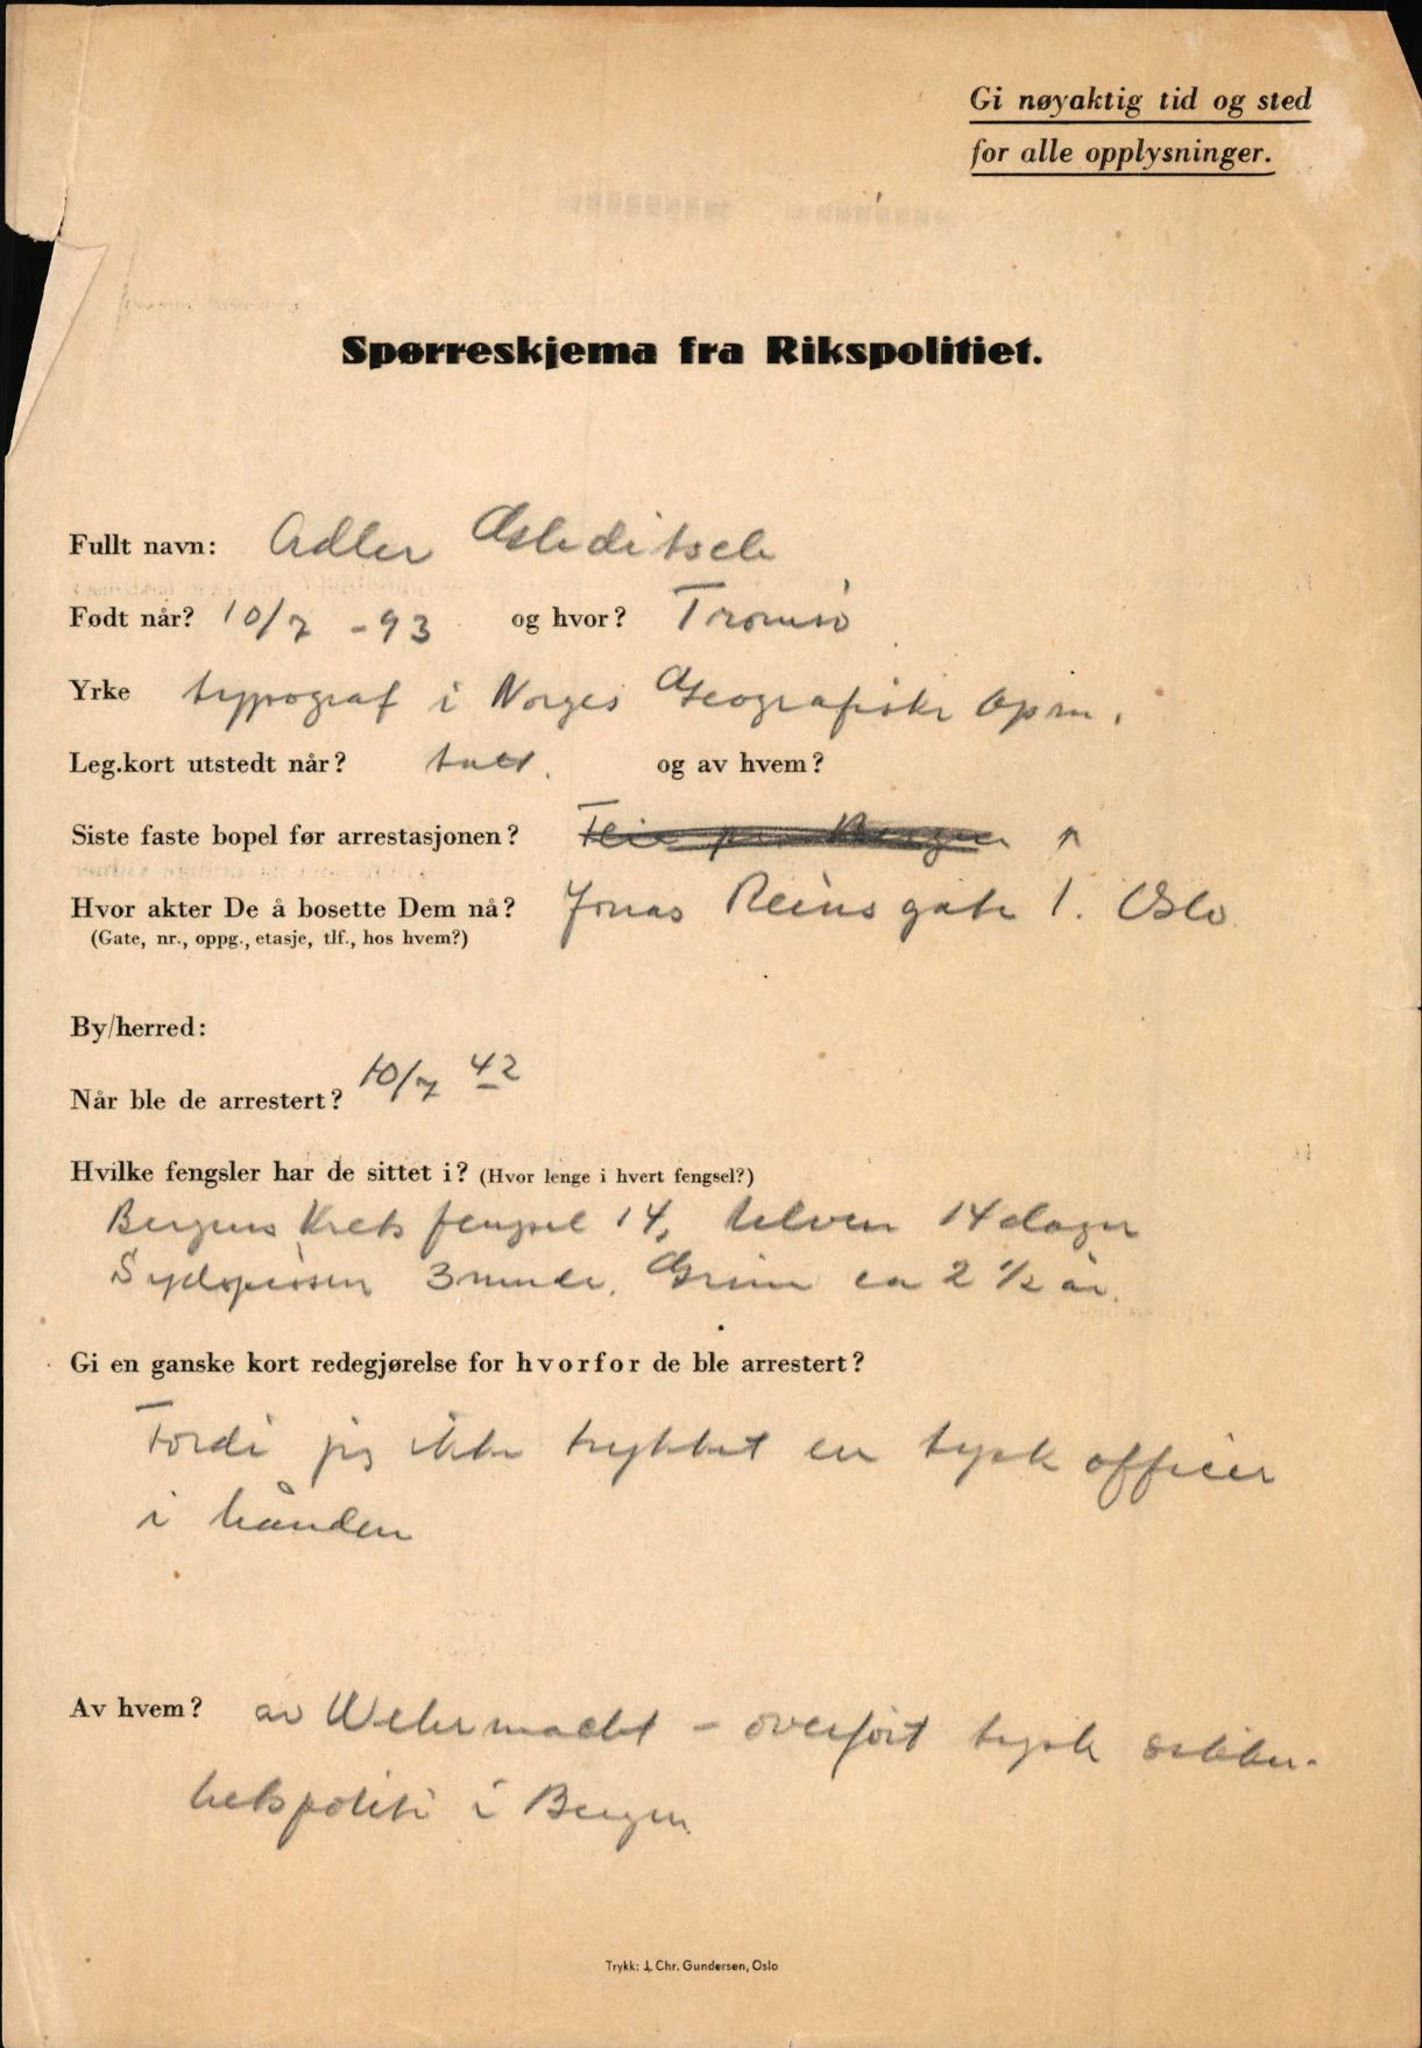 Gi nøyaktig tid og sted
for alle opplysninger.
Spørreskjema fra Rikspolitiet.
Fullt navn: Adler
Født når? 10/7 -93 og hvor? Tromsø
Yrke typograf i Norges Geografiske Opm.
Leg.kort utstedt når? og av hvem?
Siste faste bopel før arrestasjonen?
Hvor akter De å bosette Dem nå? Jonas Reins gate 1. Oslo
(Gate, nr., oppg., etasje, tlf., hos hvem?)
By/herred:
Når ble de arrestert? 10/7 42
Hvilke fengsler har de sittet i? (Hvor lenge i hvert fengsel?)
Bergens Krets fengsel 14, Ulven 14 dager
Sydspissen 3 mndr. Grini ca 2 1/2 år.
Gi en ganske kort redegjørelse for hvorfor de ble arrestert?
Fordi jeg ikke trykket en tysk officer
i hånden
Av hvem? av Wehrmacht - overført tysk sikker-
hetspoliti i Bergen
Trykk: J. Chr. Gundersen, Oslo